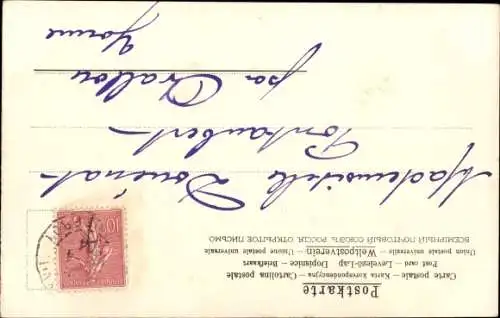 Postkarte
Carte postale • Karta korespondencyjna • Cartolina postale
Post card • Levelező-Lap • Dopisnice • Briefkaart
Union postale universelle Weltpostverein Unione postale universale
ВСЕМІРНЫЙ ПОЧТОВЫЙ СОЮЗЪ РОССІЯ. ОТКРЫТОЕ ПИСЬМО
Mademoiselle
Pontaubert
par Avallon
Yonne
10